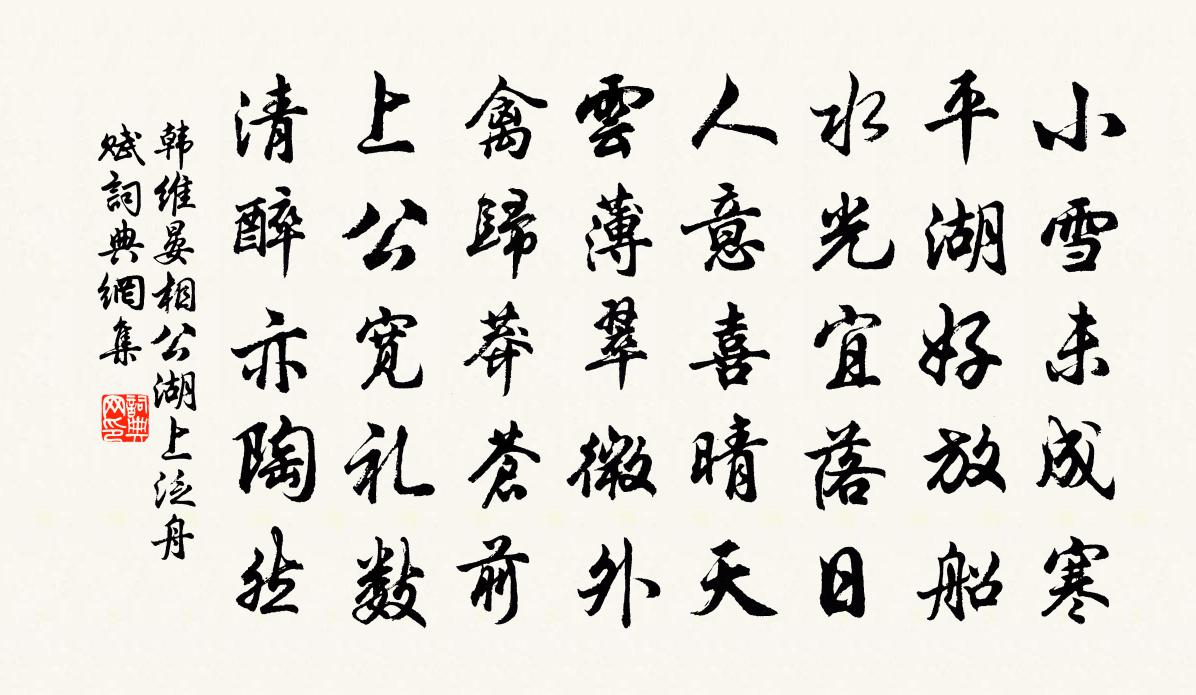 小雪未成寒
平湖好放船
水光宜落日
人意喜晴天
雲薄翠微外
禽歸莽蒼前
上公寬礼數
清醉亦陶然
韩維晏相公湖上泛舟
赋詞典網集
詞典网印